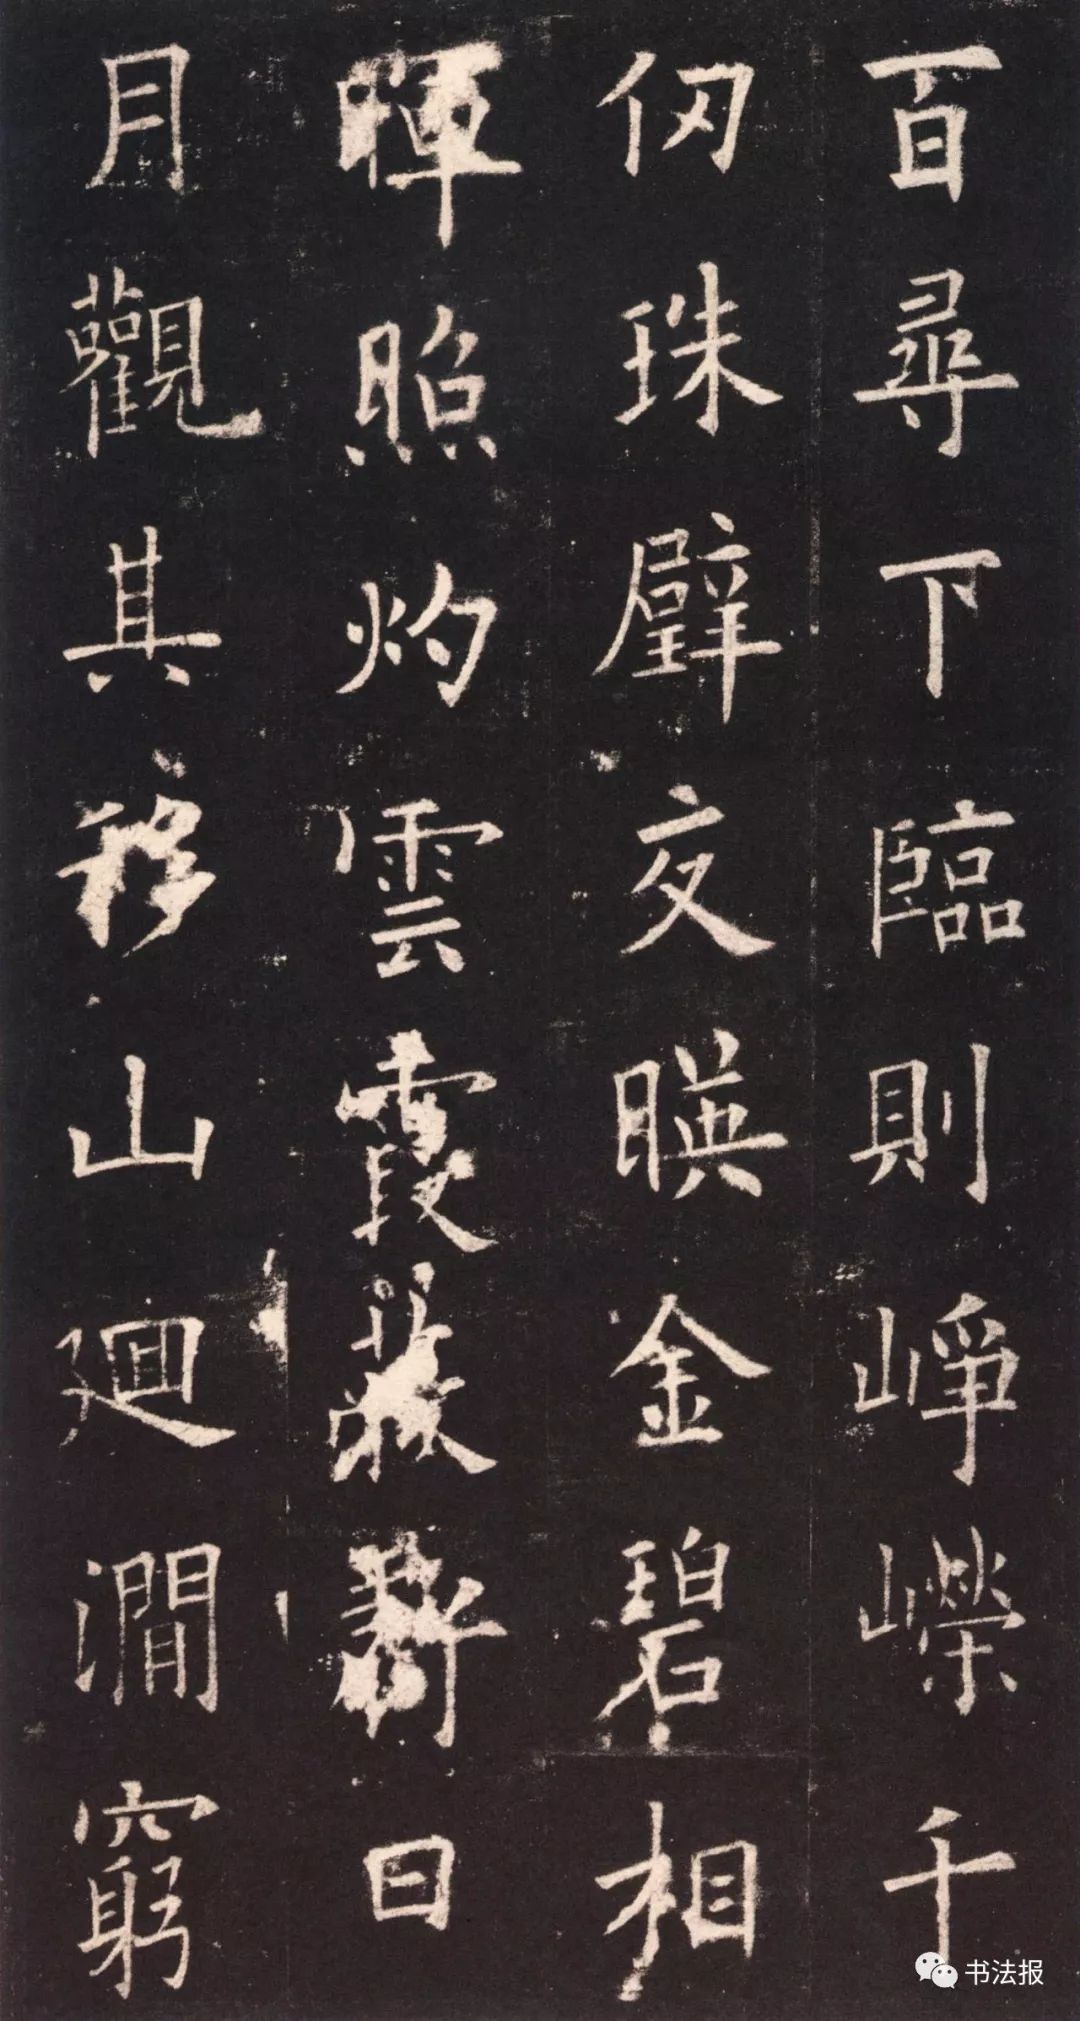 百尋下臨則崢嶸千
仞珠壁交暎金碧相
暉照灼雲霞蔽虧日
月觀其移山廻澗窮
书法报